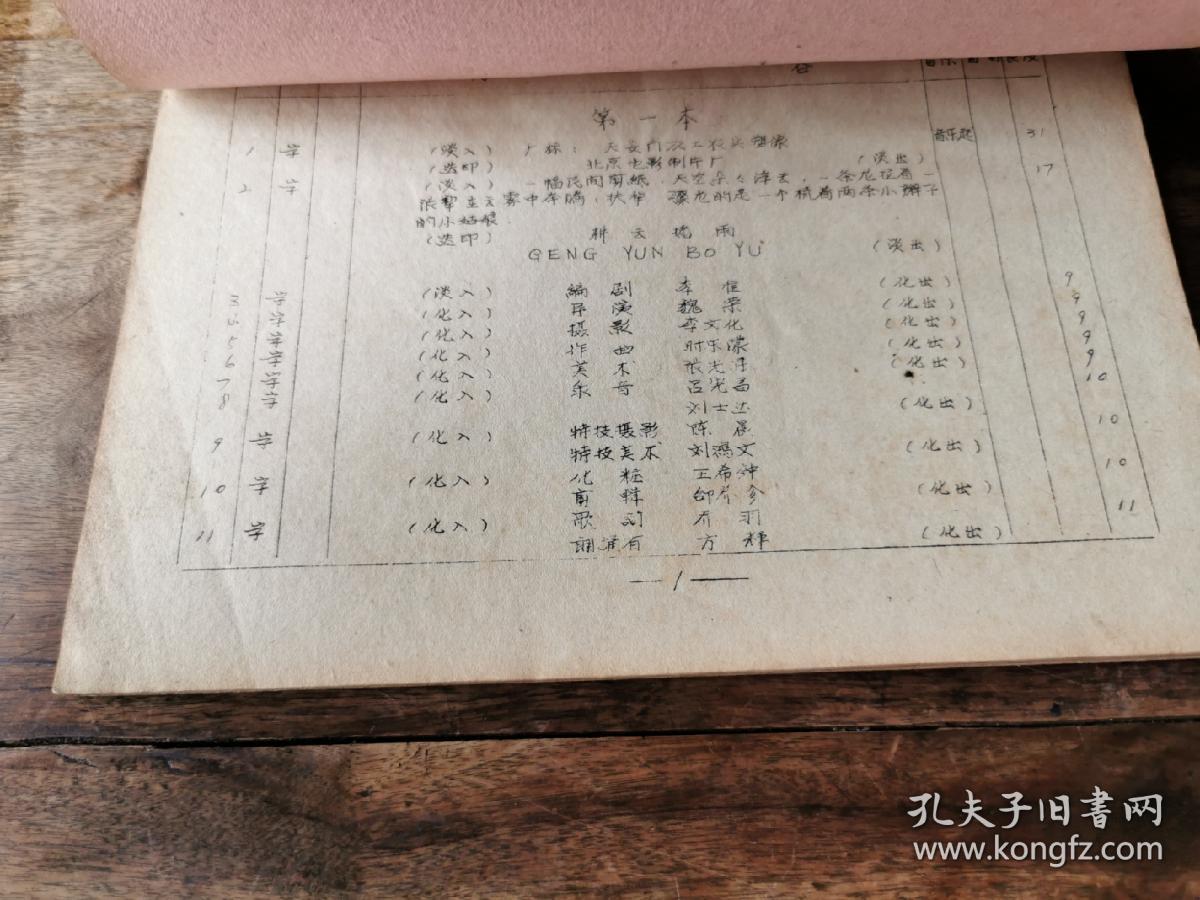 容 音乐
第一本
1 字 (淡入) 厂标：天安门及工农兵塑像 音乐起 31
(迭印) 北京电影制片厂 (淡出)
2 字 (淡入) 一幅民间剪紙．天空朵々浮云，一条龙拉着一 17
张犂在云雾中奔腾，扶犂 骑龙的是一个梳着两条小辫子
的小姑娘
(迭印) 耕云播雨
GENG YUN BO YU (淡出)
3 字 (淡入) 編剧 李恒 (化出) 9
4 字 (化入) 导演 魏荣 (化出) 9
5 字 (化入) 摄影 李文化 (化出) 9
6 字 (化入) 作曲 时乐濛 (化出) 9
7 字 (化入) 美术 张先得 (化出) 9
8 字 (化入) 录音 吕宪昌 10
刘士达 (化出)
9 字 (化入) 特技摄影 陈晨 10
特技美术 刘鴻文 (化出)
10 字 (化入) 化粧 王希钟 10
剪辑 (化出)
11 字 (化入) 歌词 乔羽 11
朗诵者 方輝 (化出)
—1—
孔夫子旧書网
www.kongfz.com